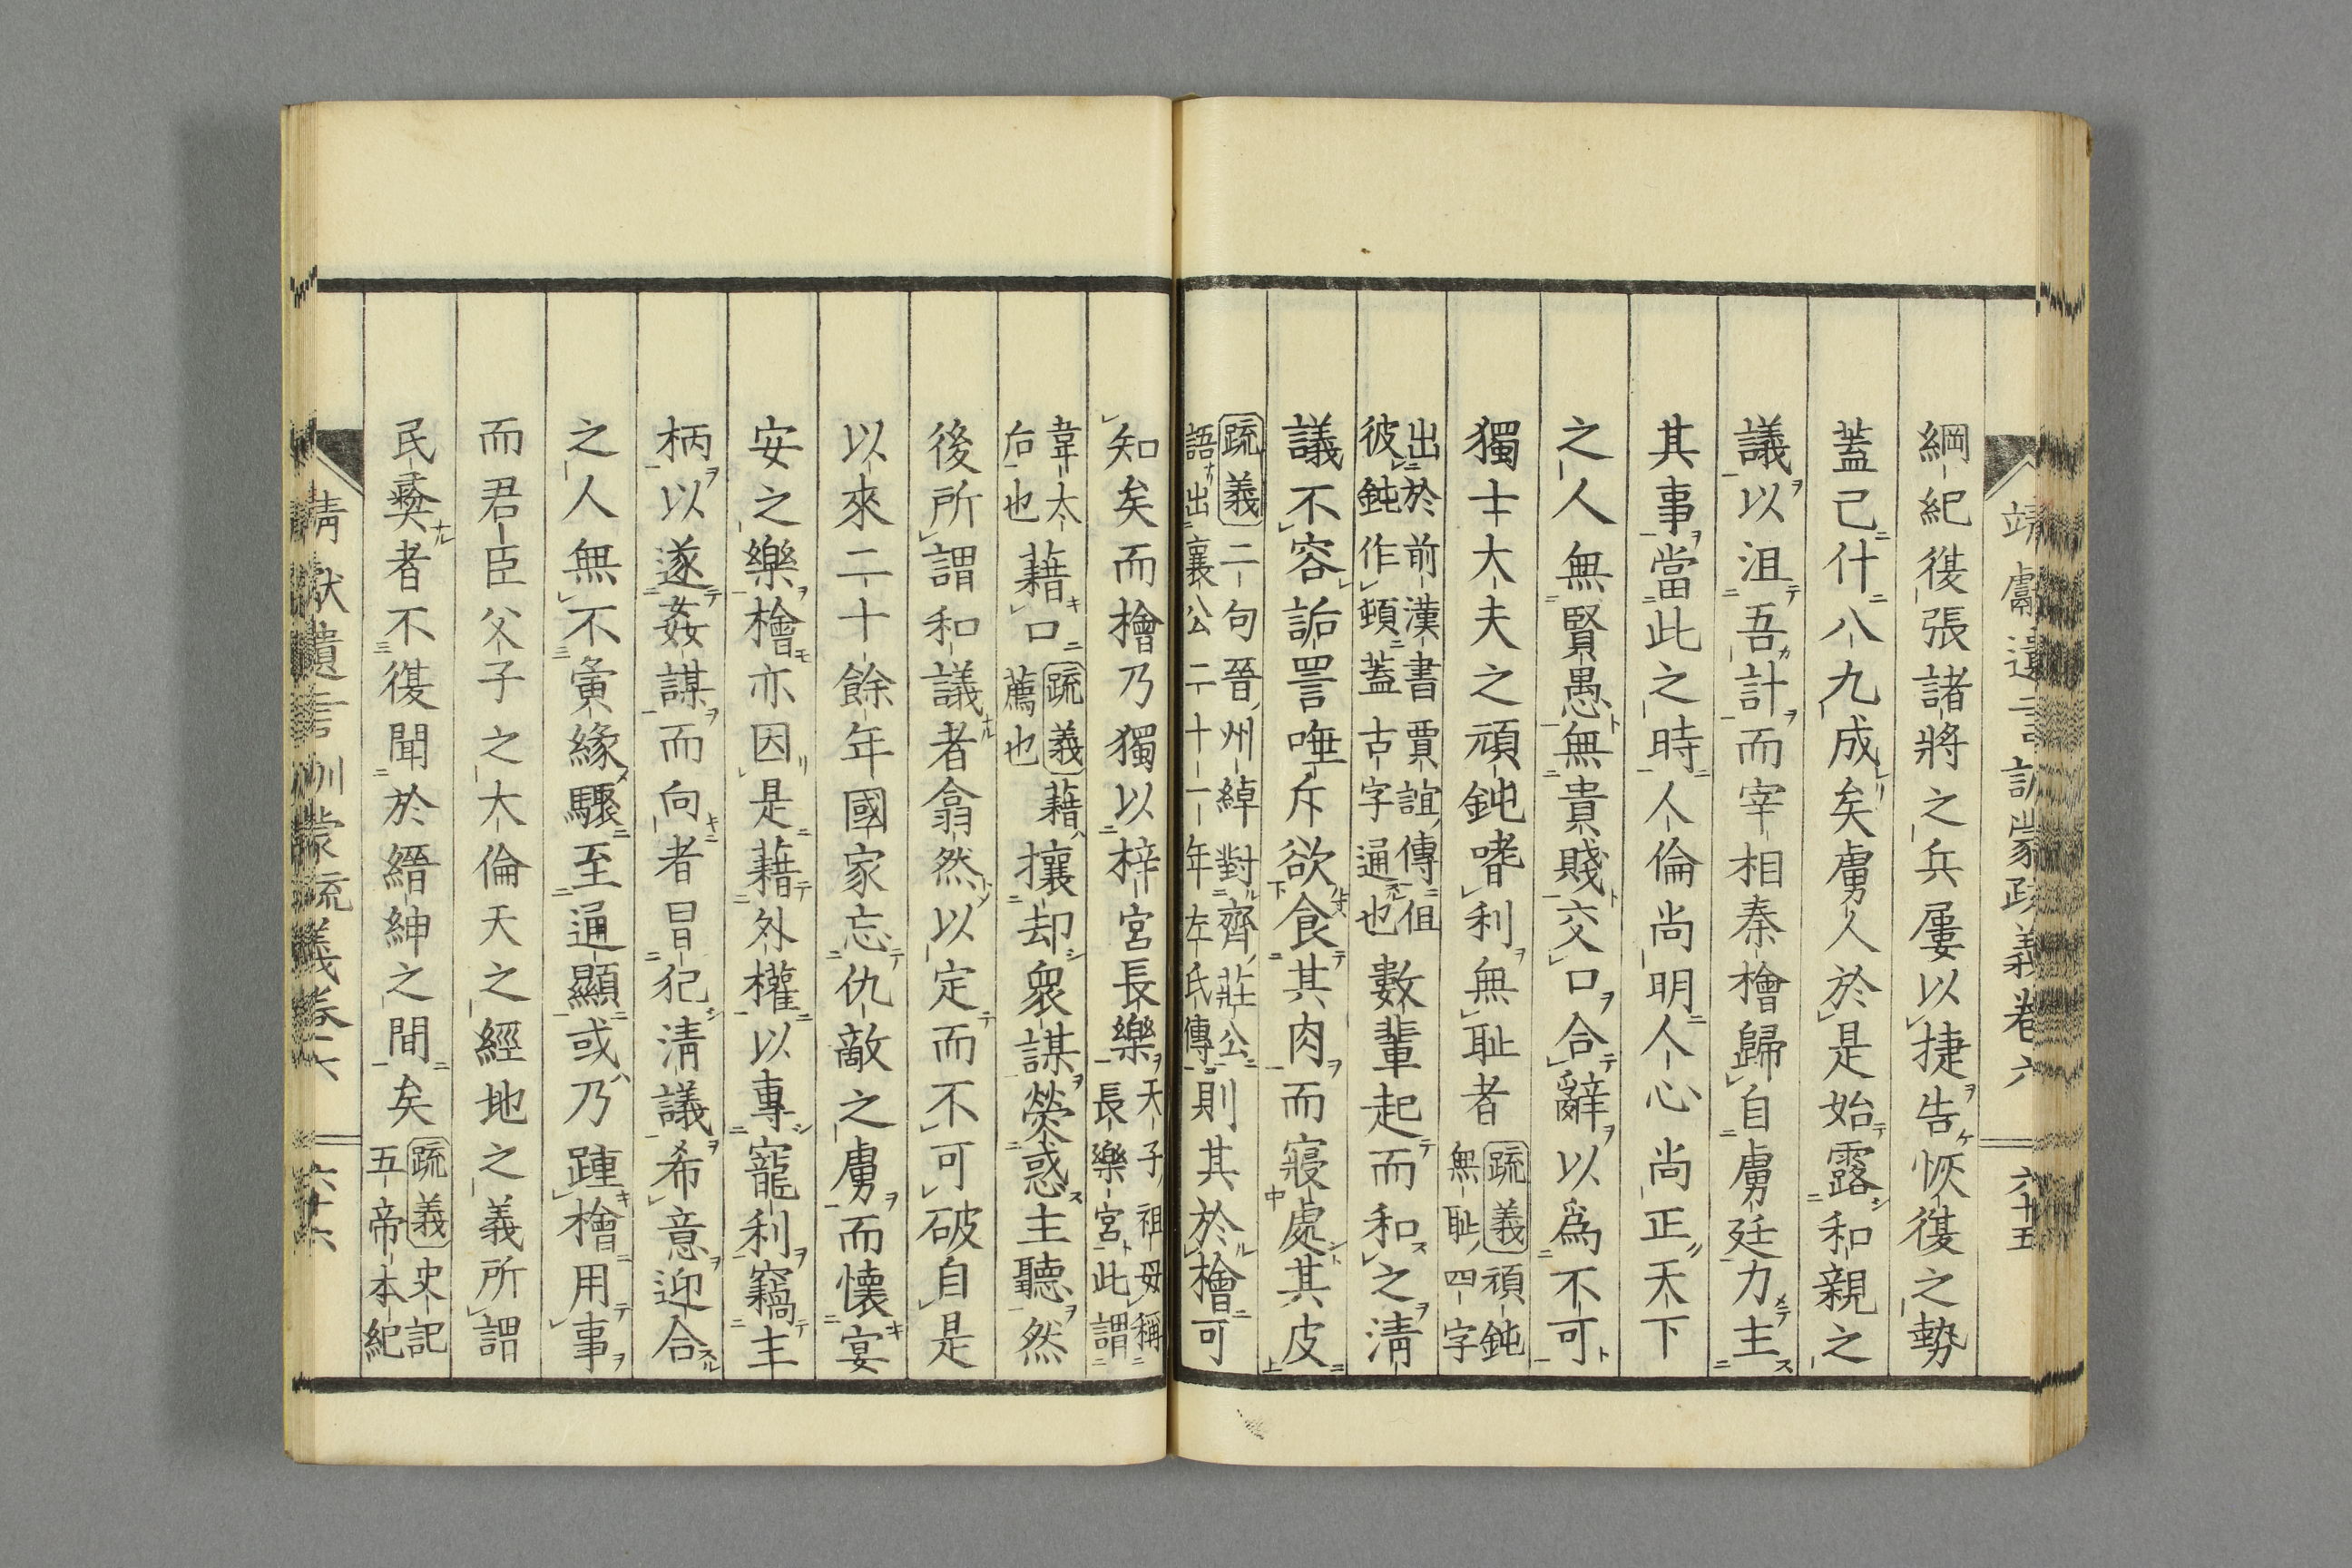 靖獻遺言訓蒙疏義卷六 六十五
綱紀復張諸將之兵屢以捷告恢復之勢
蓋已什八九成矣虜人於是始露和親之
議以沮吾計而宰相秦檜歸自虜廷力主
其事當此之時人倫尚明人心尚正天下
之人無賢愚無貴賤交口合辭以爲不可
獨士大夫之頑鈍嗜利無耻者
疏義頑鈍
無耻四字
出於前漢書賈誼傳但
彼鈍作頓蓋古字通也
數輩起而和之淸
議不容詬詈唾斥欲食其肉而寢處其皮
疏義二句晉州綽對齊莊公
語出襄公二十一年左氏傳
則其於檜可
知矣而檜乃獨以梓宮長樂
天子祖母稱
長樂宮此謂
韋太
后也
藉口
疏義
薦也
藉攘却衆謀熒惑主聽然
後所謂和議者翕然以定而不可破自是
以來二十餘年國家忘仇敵之虜而懷宴
安之樂檜亦因是藉外權以專寵利竊主
柄以遂姦謀而向者冒犯淸議希意迎合
之人無不夤緣驟至通顯或乃踵檜用事
而君臣父子之大倫天之經地之義所謂
民彜者不復聞於縉紳之間矣
疏義史記
五帝本紀
靖獻遺言訓蒙疏義卷六 六十六